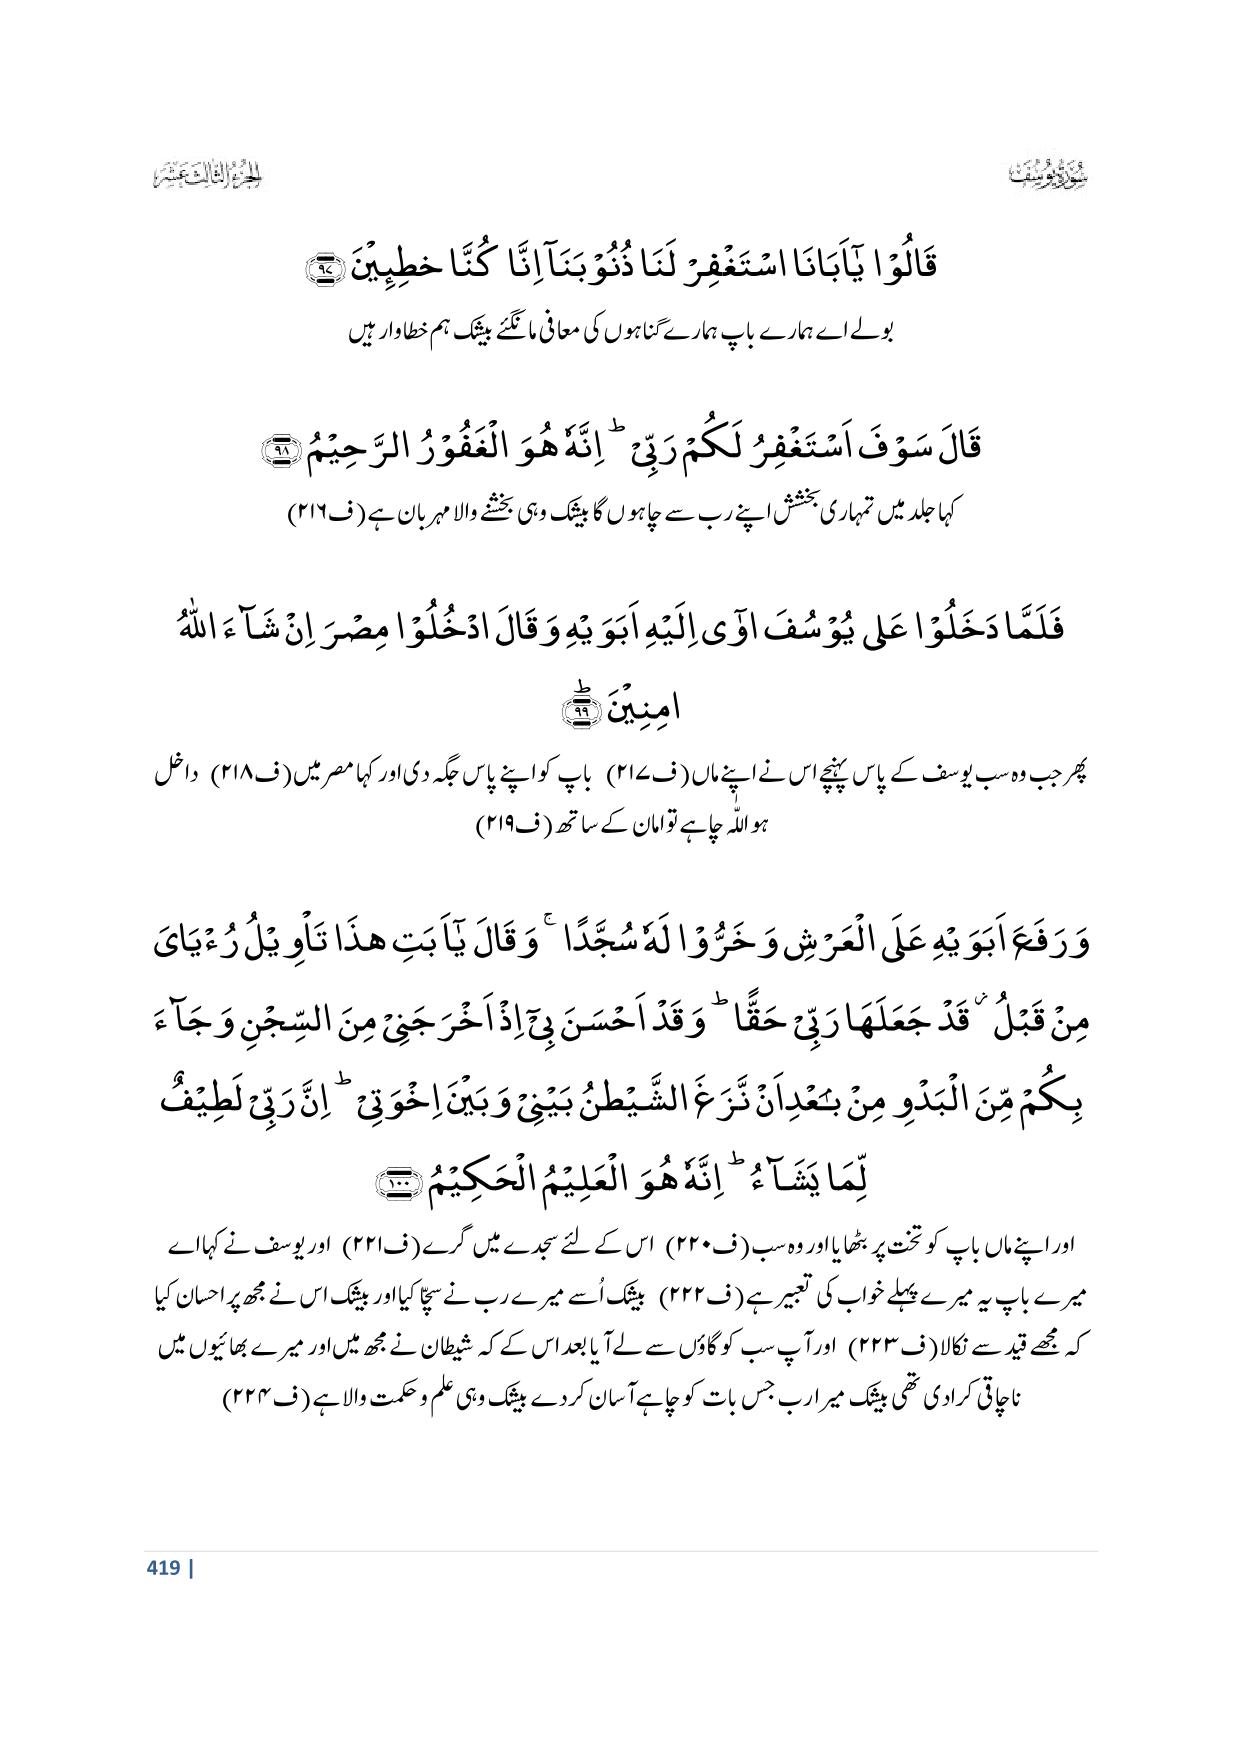 سُوۡرَةُ يُوۡسُف
الجُزۡءُ الثَّالِث عَشَر
قَالُوۡا يٰۤاَبَانَا اسۡتَغۡفِرۡ لَنَا ذُنُوۡبَنَاۤ اِنَّا كُنَّا خٰطِـِٕيۡنَ ﴿۹۷﴾
بولے اے ہمارے باپ ہمارے گناہوں کی معافی مانگئے بیشک ہم خطاوار ہیں
قَالَ سَوۡفَ اَسۡتَغۡفِرُ لَكُمۡ رَبِّىۡ ؕ اِنَّهٗ هُوَ الۡغَفُوۡرُ الرَّحِيۡمُ ﴿۹۸﴾
کہا جلد میں تمہاری بخشش اپنے رب سے چاہوں گا بیشک وہی بخشنے والا مہربان ہے (ف۲۱۶)
فَلَمَّا دَخَلُوۡا عَلٰى يُوۡسُفَ اٰوٰٓى اِلَيۡهِ اَبَوَيۡهِ وَقَالَ ادۡخُلُوۡا مِصۡرَ اِنۡ شَآءَ اللّٰهُ
اٰمِنِيۡنَ ؕ﴿۹۹﴾
پھر جب وہ سب یوسف کے پاس پہنچے اس نے اپنے ماں (ف۲۱۷) باپ کو اپنے پاس جگہ دی اور کہا مصر میں (ف۲۱۸) داخل
ہو اللّٰہ چاہے تو امان کے ساتھ (ف۲۱۹)
وَرَفَعَ اَبَوَيۡهِ عَلَى الۡعَرۡشِ وَخَرُّوۡا لَهٗ سُجَّدًا ۚ وَقَالَ يٰۤاَبَتِ هٰذَا تَاۡوِيۡلُ رُءۡيَاىَ
مِنۡ قَبۡلُ ۫ قَدۡ جَعَلَهَا رَبِّىۡ حَقًّا ؕ وَقَدۡ اَحۡسَنَ بِىۡۤ اِذۡ اَخۡرَجَنِىۡ مِنَ السِّجۡنِ وَجَآءَ
بِكُمۡ مِّنَ الۡبَدۡوِ مِنۡۢ بَعۡدِ اَنۡ نَّزَغَ الشَّيۡطٰنُ بَيۡنِىۡ وَبَيۡنَ اِخۡوَتِىۡ ؕ اِنَّ رَبِّىۡ لَطِيۡفٌ
لِّمَا يَشَآءُ ؕ اِنَّهٗ هُوَ الۡعَلِيۡمُ الۡحَكِيۡمُ ﴿۱۰۰﴾
اور اپنے ماں باپ کو تخت پر بٹھایا اور وہ سب (ف۲۲۰) اس کے لئے سجدے میں گرے (ف۲۲۱) اور یوسف نے کہا اے
میرے باپ یہ میرے پہلے خواب کی تعبیر ہے (ف۲۲۲) بیشک اُسے میرے رب نے سچّا کیا اور بیشک اس نے مجھ پر احسان کیا
کہ مجھے قید سے نکالا (ف۲۲۳) اور آپ سب کو گاؤں سے لے آیا بعد اس کے کہ شیطان نے مجھ میں اور میرے بھائیوں میں
ناچاقی کرادی تھی بیشک میرا رب جس بات کو چاہے آسان کردے بیشک وہی علم و حکمت والا ہے (ف۲۲۴)
419 |